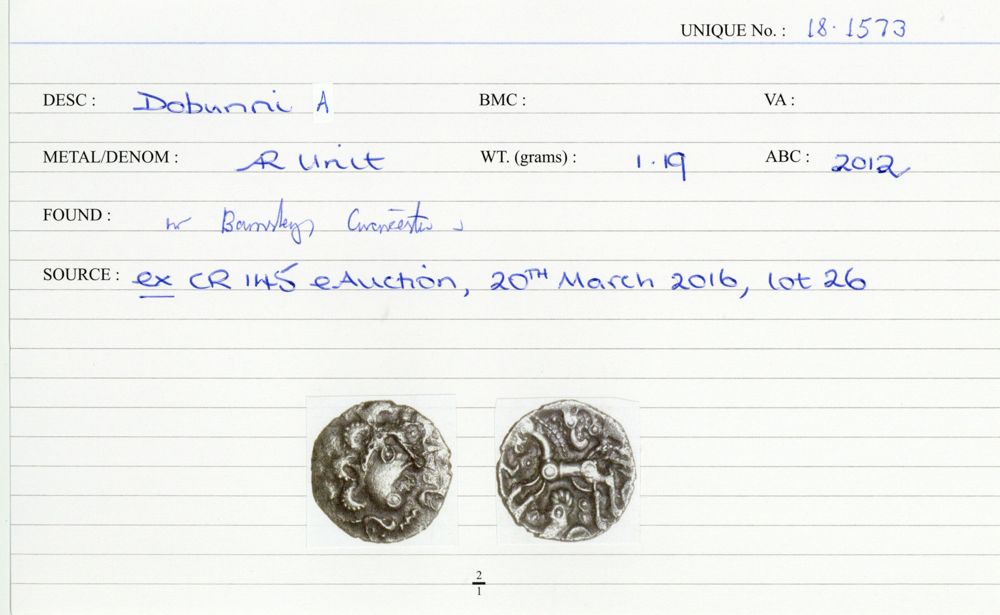 UNIQUE No. : 18·1573
DESC : Dobunni A BMC : VA :
METAL/DENOM : AR Unit WT. (grams) : 1·19 ABC : 2012
FOUND : nr
SOURCE : ex CR 145 eAuction, 20TH March 2016, lot 26
2
1